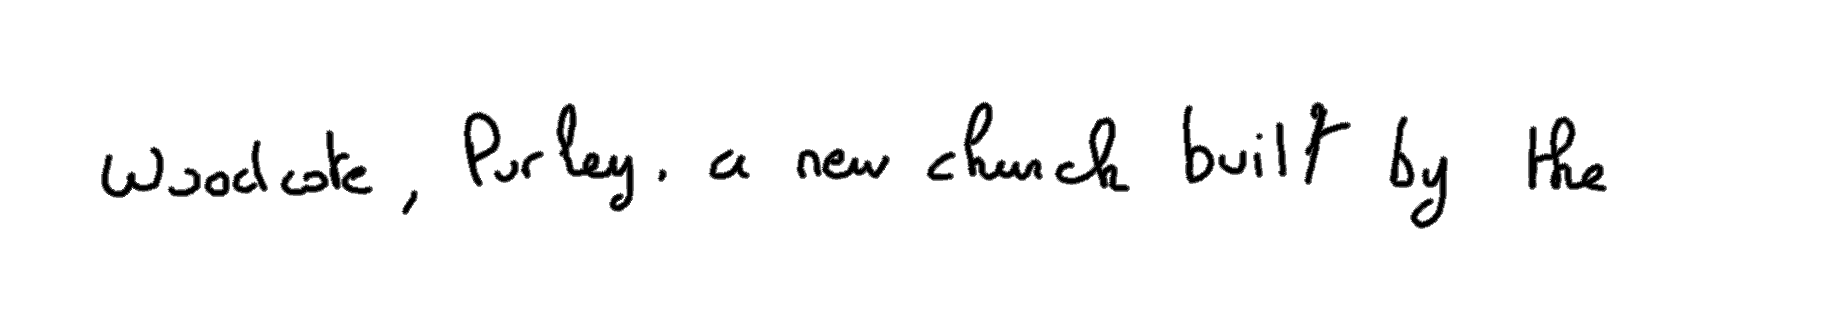 Woodcote, Purley. a new church built by the